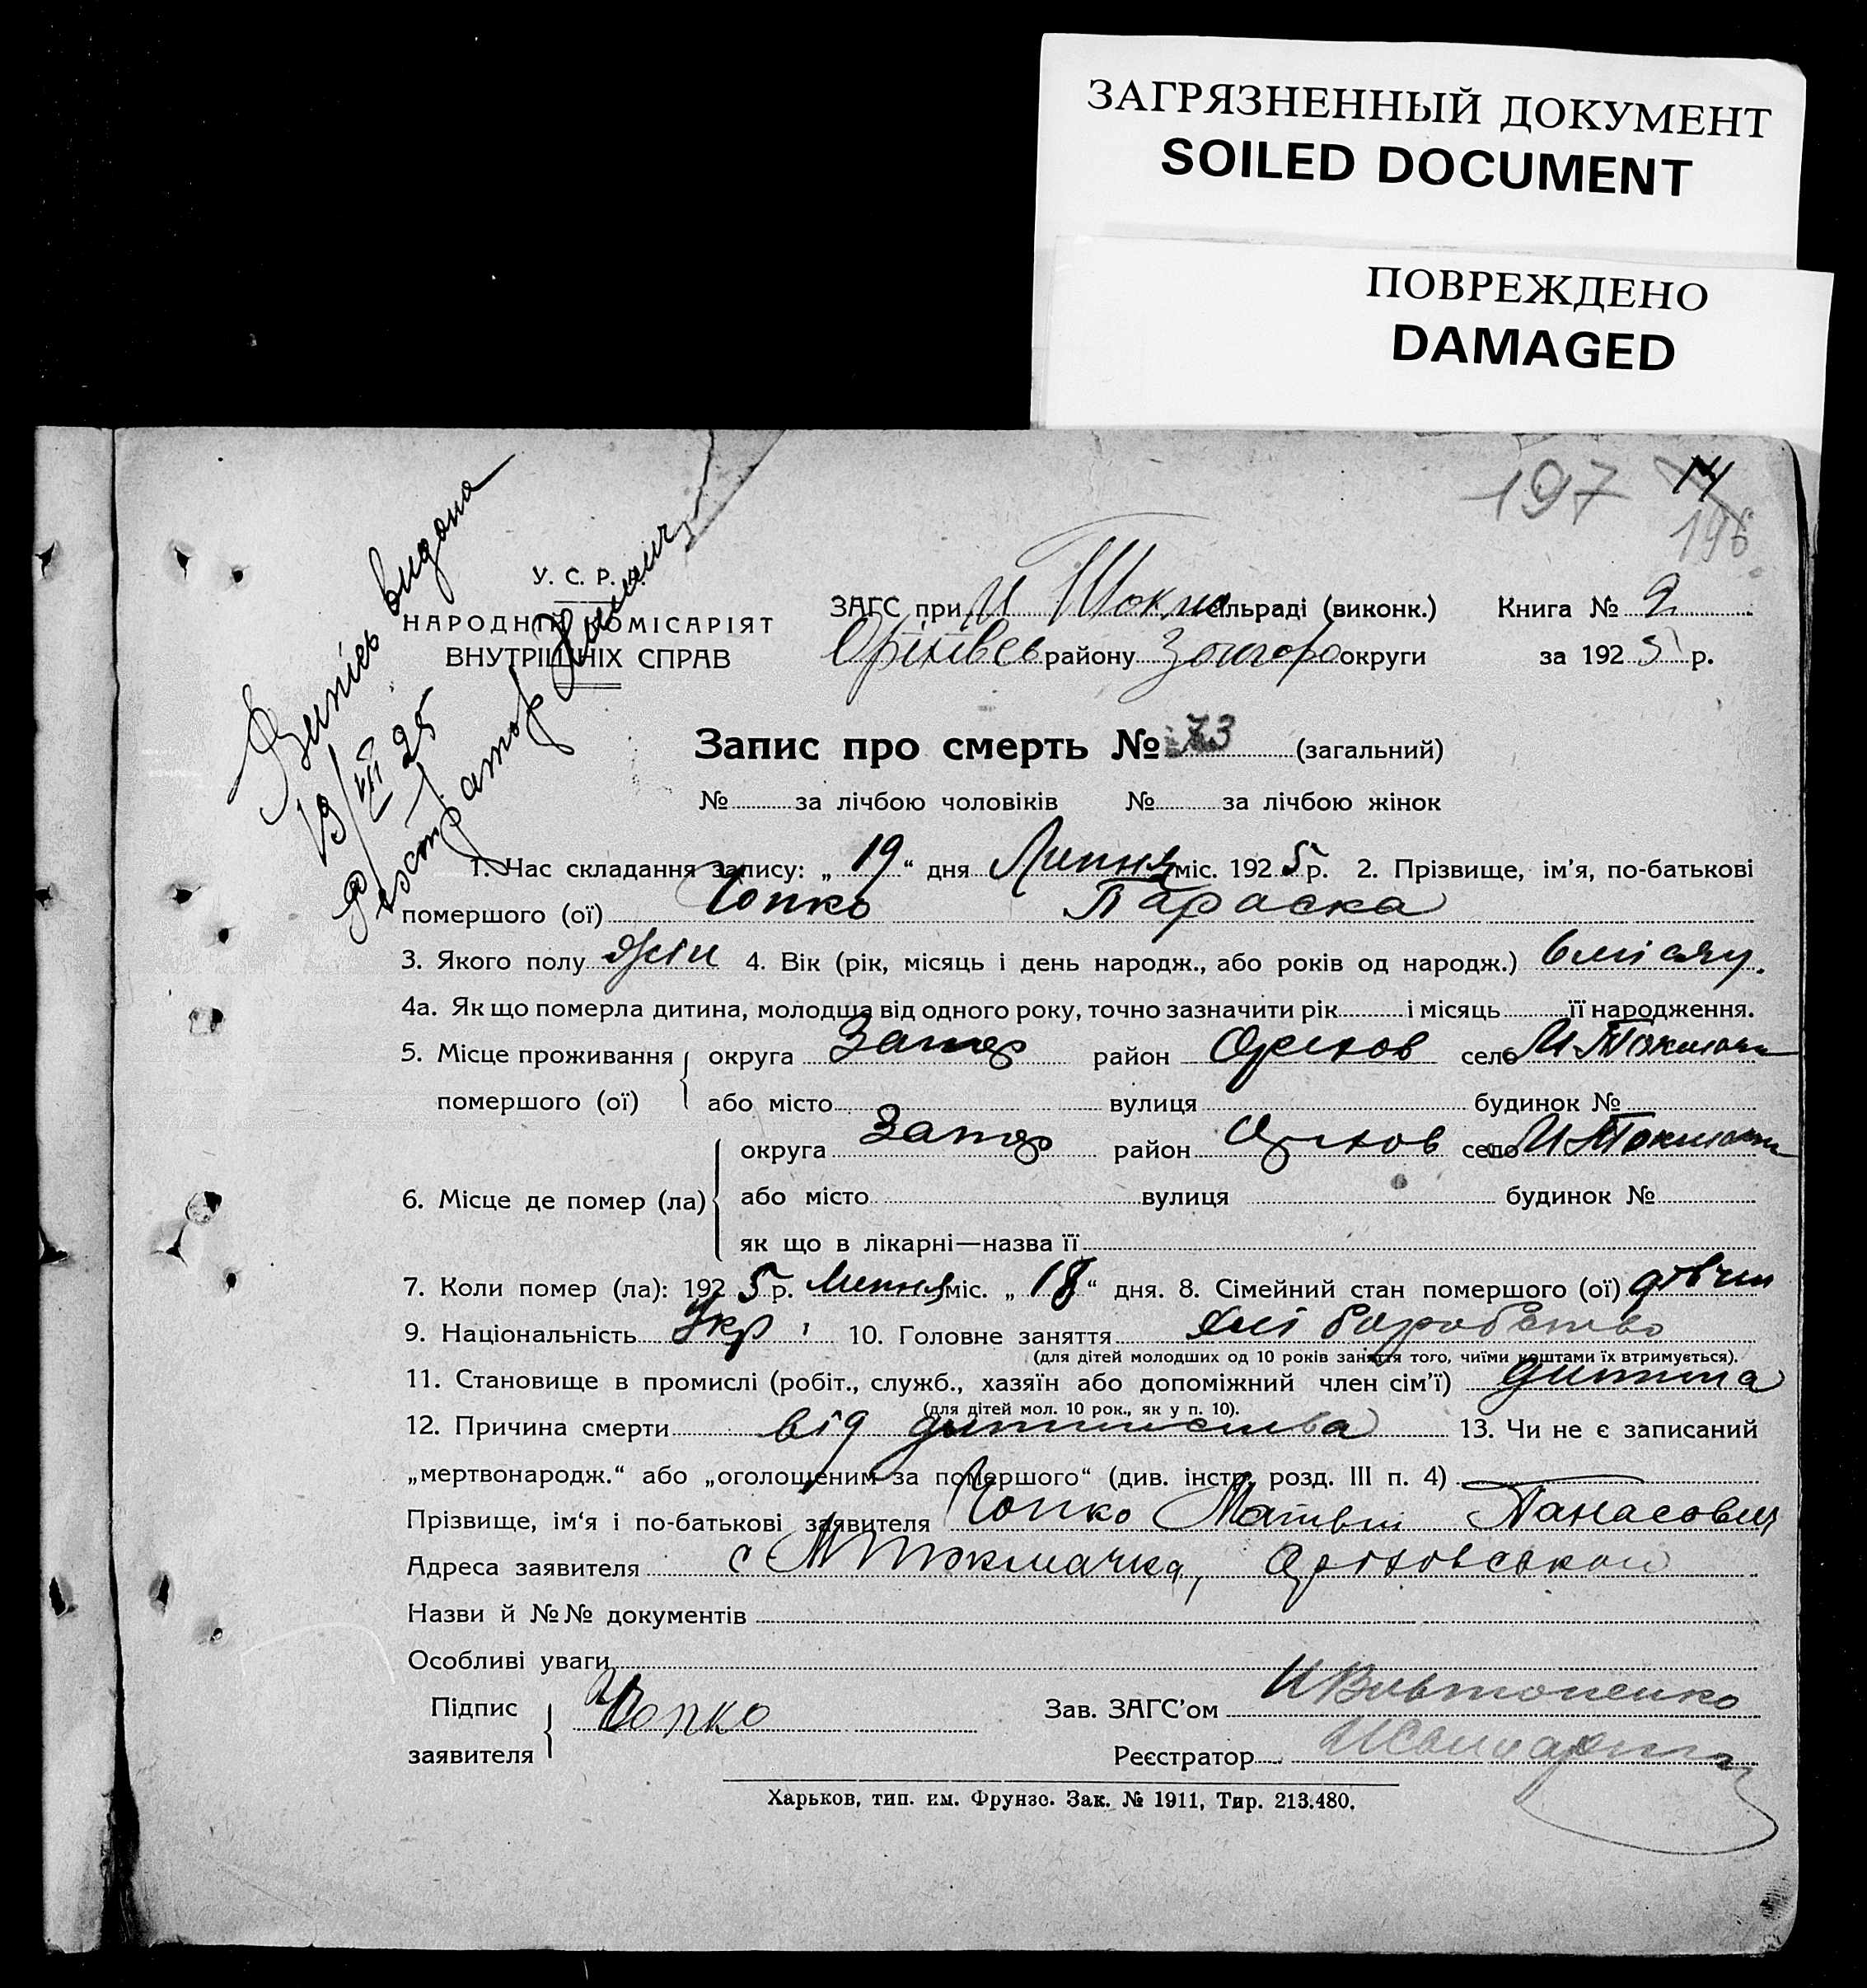 ЗАГРЯЗНЕННЫЙ ДОКУМЕНТ
SOILED DOCUMENT
ПОВРЕЖДЕНО
DAMAGED
197 14
196
Випись видана
19/VII 25
Реєстратор
У. С. Р. Р.
НАРОДНІЙ КОМІСАРІЯТ
ВНУТРІШНІХ СПРАВ
ЗАГС при М Токма сільраді (виконк.) Книга № 2
Оріхівсь району Запоро округи за 1925 р.
Запис про смерть № 73 (загальний)
№ за лічбою чоловіків № за лічбою жінок
1. Час складання запису: „ 19 “ дня Липня міс. 1925 р. 2. Прізвище, ім'я, по-батькові
помершого (ої) Чопко Параска
3. Якого полу жін 4. Вік (рік, місяць і день народж., або років од народж.) 6 місяц.
4а. Як що померла дитина, молодша від одного року, точно зазначити рік і місяць її народження.
5. Місце проживання помершого (ої) округа Запор район Оріхов село М Токмачк
або місто вулиця будинок №
6. Місце де помер (ла) округа Запор район Оріхов село М Токмачк
або місто вулиця будинок №
як що в лікарні—назва її
7. Коли помер (ла): 1925 р. Липня міс. „ 18 “ дня. 8. Сімейний стан помершого (ої) дівчин
9. Національність Укр. 10. Головне заняття хліборобство
(для дітей молодших од 10 років заняття того, чиїми коштами їх втримується).
11. Становище в промислі (робіт., служб., хазяїн або допоміжний член сім'ї) дитина
(для дітей мол. 10 рок., як у п. 10).
12. Причина смерти від 13. Чи не є записаний
„мертвонародж.“ або „оголошеним за помершого“ (див. інстр. розд. III п. 4)
Прізвище, ім'я і по-батькові заявителя Чопко Матвій Панасович
Адреса заявителя с М Токмачка, Оріховського
Назви й №№ документів
Особливі уваги
Підпис заявителя Чопко
Зав. ЗАГС'ом
Реєстратор
Харьков, тип. им. Фрунзе. Зак. № 1911, Тир. 213.480.